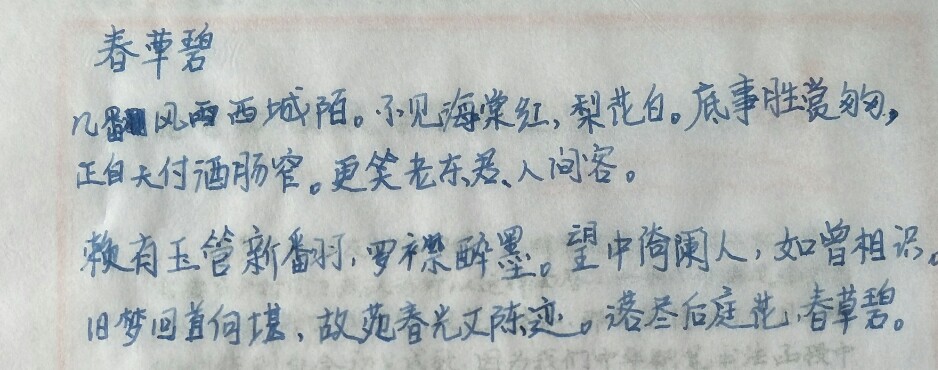 春草碧
几番风雨西城陌。不见海棠红，梨花白。底事胜赏匆匆，
正自天付酒肠窄。更笑老东君、人间客。
赖有玉管新翻，罗襟醉墨。望中倚阑人，如曾相识。
旧梦回首何堪，故苑春光又陈迹。落尽后庭花，春草碧。